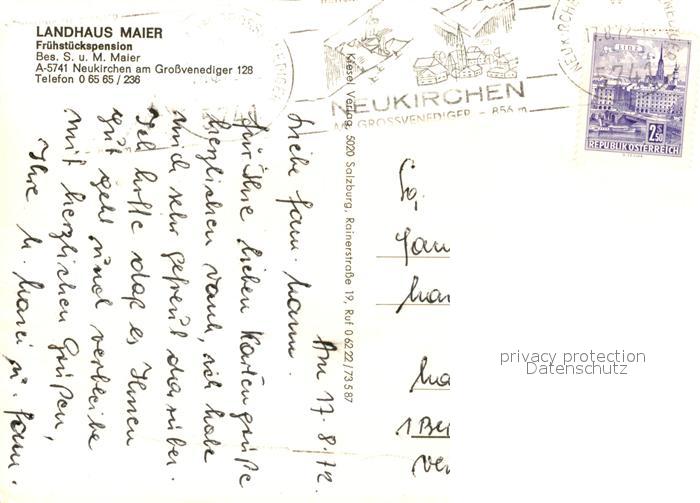 LANDHAUS MAIER
Frühstückspension
Bes. S. u. M. Maier
A-5741 Neukirchen am Großvenediger 128
Telefon 0 65 65 / 236
NEUKIRCHEN
AM GROSSVENEDIGER - 856 m
LINZ
2.50
REPUBLIK ÖSTERREICH
Kiesel Verlag, 5020 Salzburg, Rainerstraße 19, Ruf 0 62 22 / 73 5 87
Am 17.8.72.
Liebe Fam. Mann.
Für Ihre lieben Kartengrüße
herzlichen Dank, ich habe
mich sehr gefreut darüber.
Ich hoffe daß es Ihnen
gut geht und verbleibe
mit herzlichen Grüßen,
Ihre M. Maier u. Fam.
Fam
1 Ber
privacy protection
Datenschutz